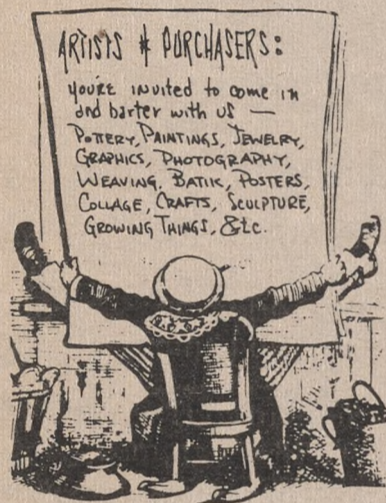 ARTISTS & PURCHASERS:
you're invited to come in
and barter with us —
POTTERY, PAINTINGS, JEWELRY,
GRAPHICS, PHOTOGRAPHY,
WEAVING, BATIK, POSTERS,
COLLAGE, CRAFTS, SCULPTURE,
GROWING THINGS, &tc.